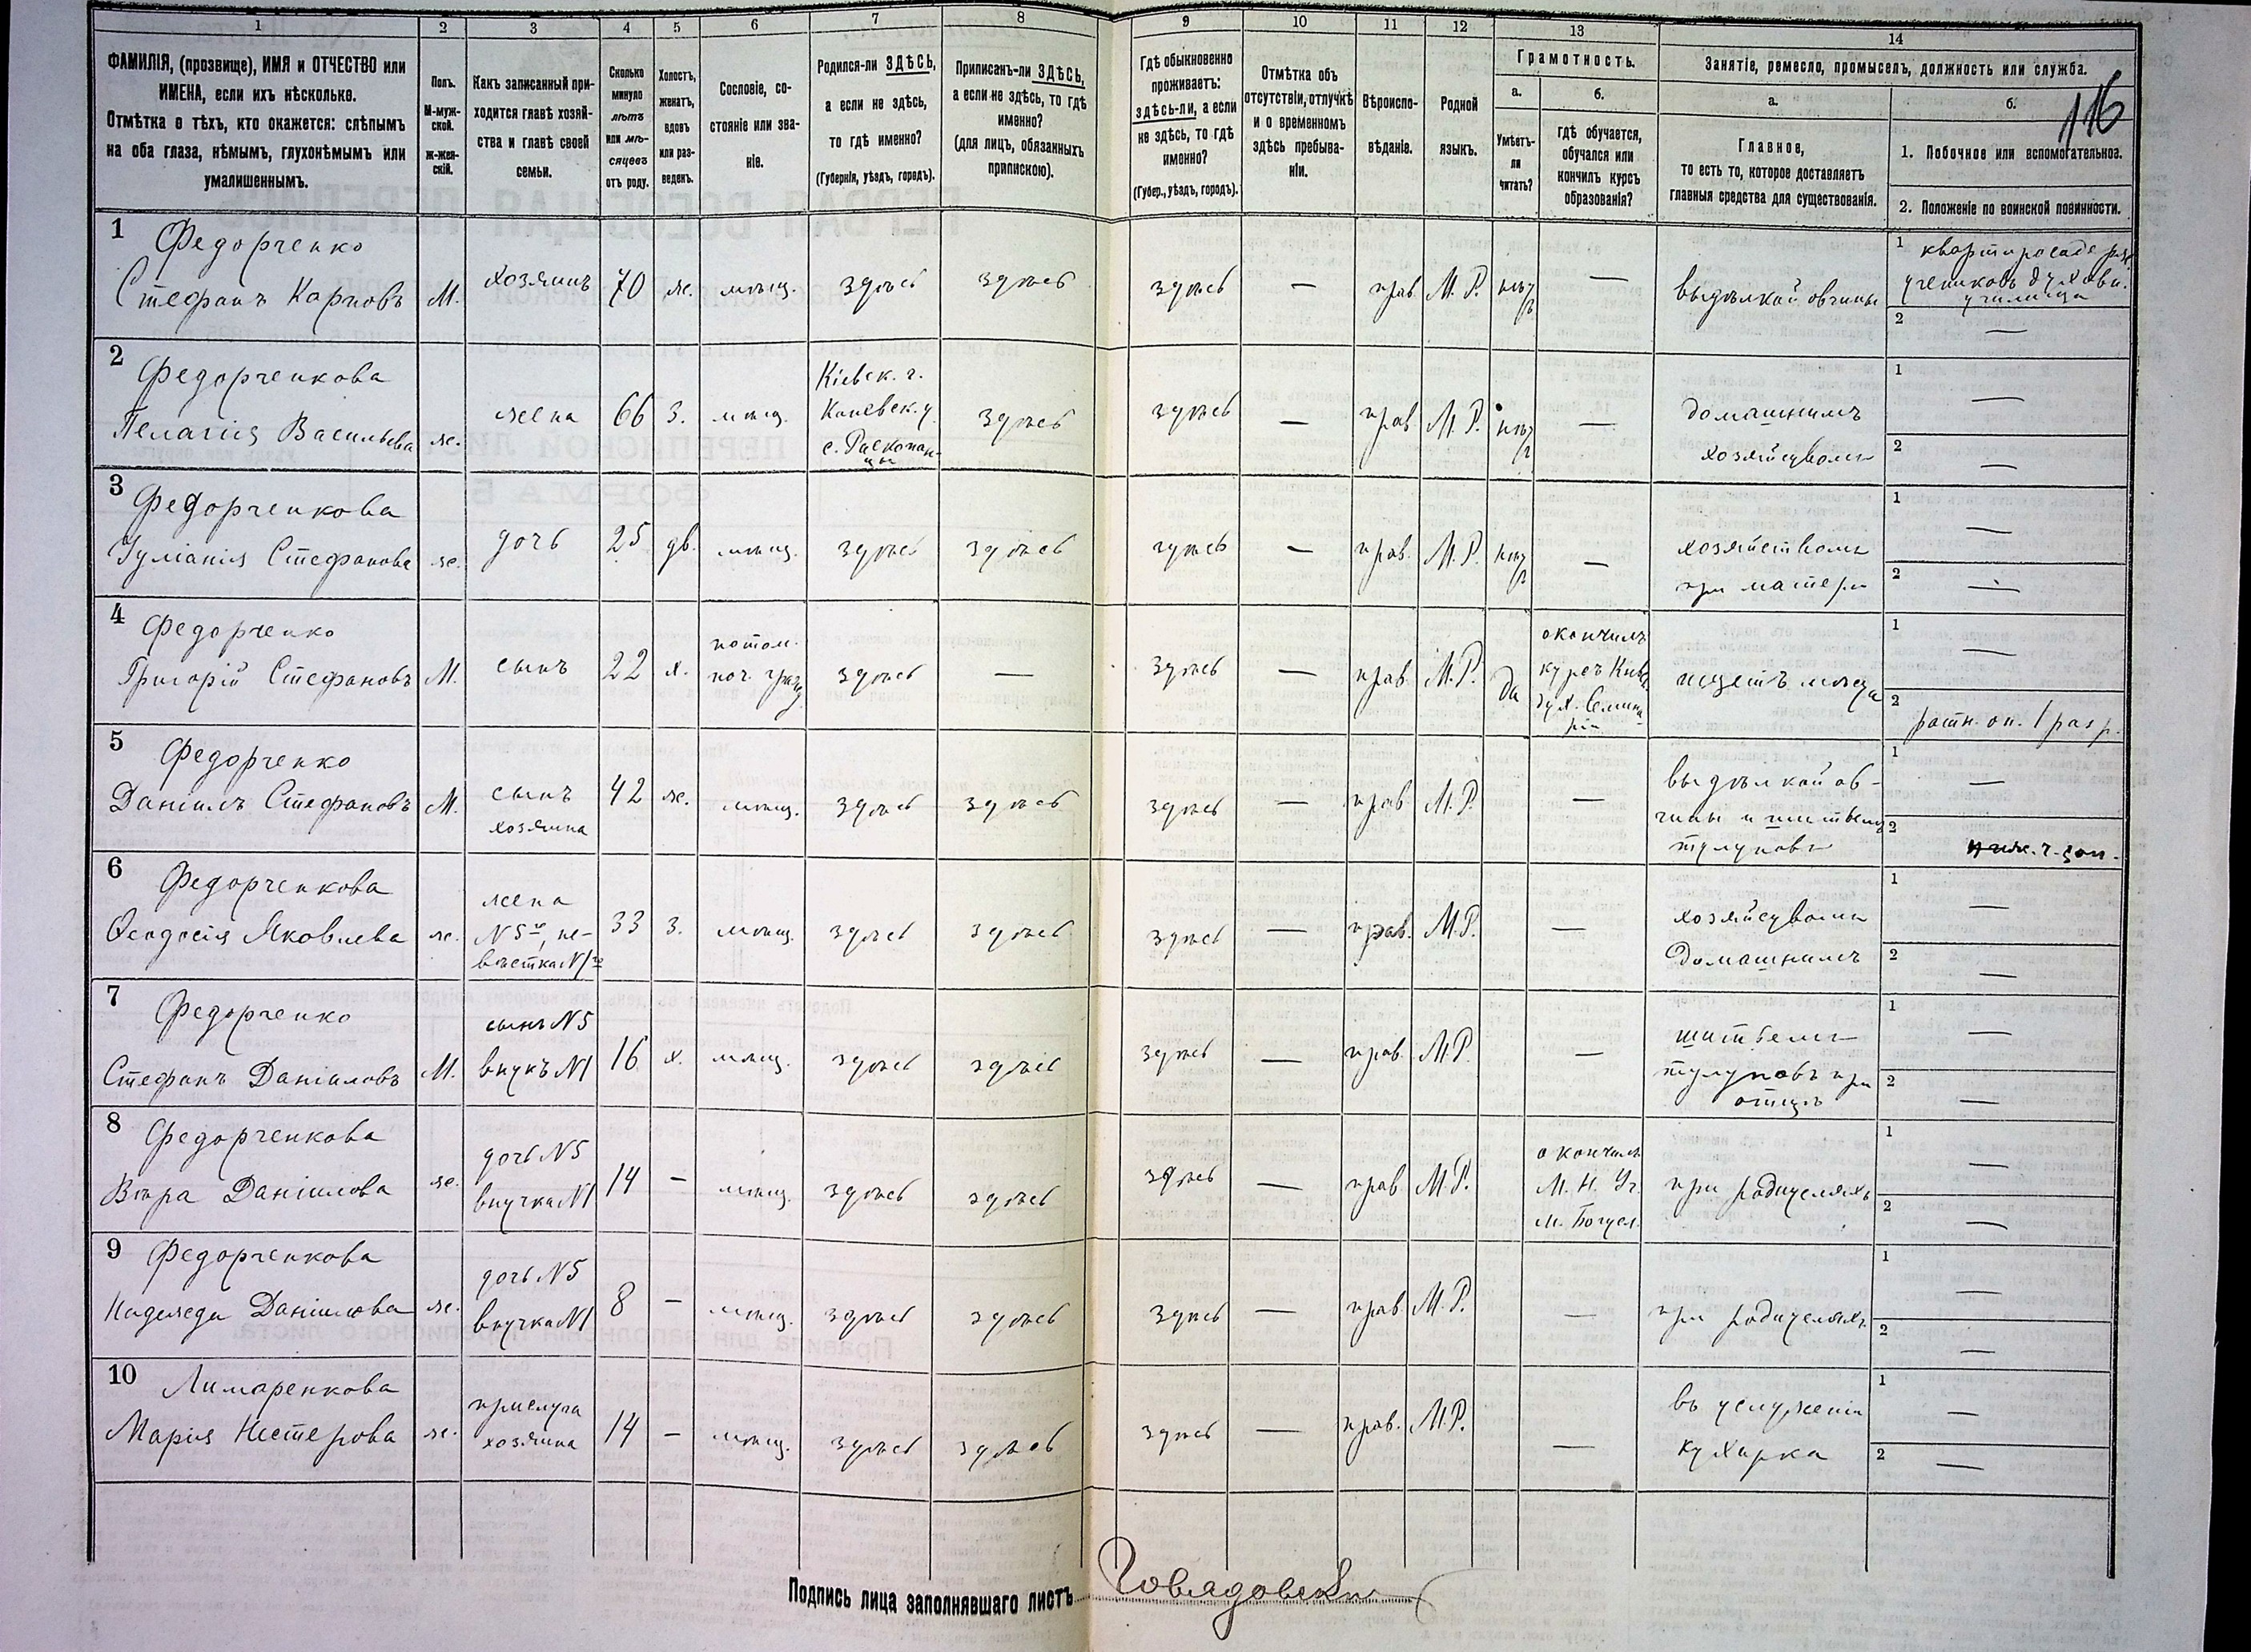 1
2
3
4
5
6
7
8
9
10
11
12
13
14
ФАМИЛІЯ, (прозвище), ИМЯ и ОТЧЕСТВО или
ИМЕНА, если ихъ нѣсколько.
Отмѣтка о тѣхъ, кто окажется: слѣпымъ
на оба глаза, нѣмымъ, глухонѣмымъ или
умалишеннымъ.
Полъ.
М-муж-
ской.
ж-жен-
скій.
Какъ записанный при-
ходится главѣ хозяй-
ства и главѣ своей
семьи.
Сколько
минуло
лѣтъ
или мѣ-
сяцевъ
отъ роду.
Холостъ,
женатъ,
вдовъ
или раз-
веденъ.
Сословіе, со-
стояніе или зва-
ніе.
Родился-ли ЗДѢСЬ,
а если не здѣсь,
то гдѣ именно?
(Губернія, уѣздъ, городъ).
Приписанъ-ли ЗДѢСЬ,
а если не здѣсь, то гдѣ
именно?
(для лицъ, обязанныхъ
припискою).
Гдѣ обыкновенно
проживаетъ:
здѣсь-ли, а если
не здѣсь, то гдѣ
именно?
(Губер., уѣздъ, городъ).
Отмѣтка объ
отсутствіи, отлучкѣ
и о временномъ
здѣсь пребыва-
ніи.
Вѣроиспо-
вѣданіе.
Родной
языкъ.
Грамотность.
а.
Умѣетъ-
ли
читать?
б.
гдѣ обучается,
обучался или
кончилъ курсъ
образованія?
Занятіе, ремесло, промыселъ, должность или служба.
а.
Главное,
то есть то, которое доставляетъ
главныя средства для существованія.
б.
116
1. Побочное или вспомогательное.
2. Положеніе по воинской повинности.
1
Федорченко
Стефанъ Карповъ
М.
хозяинъ
70
ж.
мѣщ.
здѣсь
здѣсь
здѣсь
—
прав.
М. Р.
нѣтъ
—
выдѣлкой овчины
1
учениковъ духовн.
училища
2
—
2
Федорченкова
Пелагія Васильева
ж.
жена
66
з.
мѣщ.
Кіевск. г.
Каневск. у.
с. Раскопан-
цы
здѣсь
здѣсь
—
прав.
М. Р.
нѣтъ
—
домашнимъ
хозяйствомъ
1
—
2
—
3
Федорченкова
Іуліанія Стефанова
ж.
дочь
25
дѣв.
мѣщ.
здѣсь
здѣсь
здѣсь
—
прав.
М. Р.
нѣтъ
—
хозяйствомъ
при матери
1
—
2
—
4
Федорченко
Григорій Стефановъ
М.
сынъ
22
х.
потом.
поч. гражд.
здѣсь
—
здѣсь
—
прав.
М. Р.
да
окончилъ
курсъ Кіевс.
дух. Семина
ріи
ищетъ мѣста
1
—
2
ратн. оп. 1 разр.
5
Федорченко
Даніилъ Стефановъ
М.
сынъ
хозяина
42
ж.
мѣщ.
здѣсь
здѣсь
здѣсь
—
прав.
М. Р.
—
выдѣлкой ов-
чины и шитьемъ
тулуповъ
1
—
2
6
Федорченкова
Ѳеодосія Яковлева
ж.
жена
N 5го, не-
вѣстка N 1го
33
з.
мѣщ.
здѣсь
здѣсь
здѣсь
—
прав.
М. Р.
—
хозяйствомъ
домашнимъ
1
—
2
—
7
Федорченко
Стефанъ Даніиловъ
М.
сынъ N 5
внукъ N 1
16
х.
мѣщ.
здѣсь
здѣсь
здѣсь
—
прав.
М. Р.
—
шитьемъ
тулуповъ при
отцѣ
1
—
2
—
8
Федорченкова
Вѣра Даніилова
ж.
дочь N 5
внучка N 1
14
—
мѣщ.
здѣсь
здѣсь
здѣсь
—
прав.
М. Р.
окончила
М. Н. Уч.
м. Богусл.
при родителяхъ
1
—
2
—
9
Федорченкова
Надежда Даніилова
ж.
дочь N 5
внучка N 1
8
—
мѣщ.
здѣсь
здѣсь
здѣсь
—
прав.
М. Р.
—
при родителяхъ
1
—
2
—
10
Лимаренкова
Марія Нестерова
ж.
прислуга
хозяина
14
—
мѣщ.
здѣсь
здѣсь
здѣсь
—
прав.
М. Р.
—
въ услуженіи
кухарка
1
—
2
—
Подпись лица заполнявшаго листъ